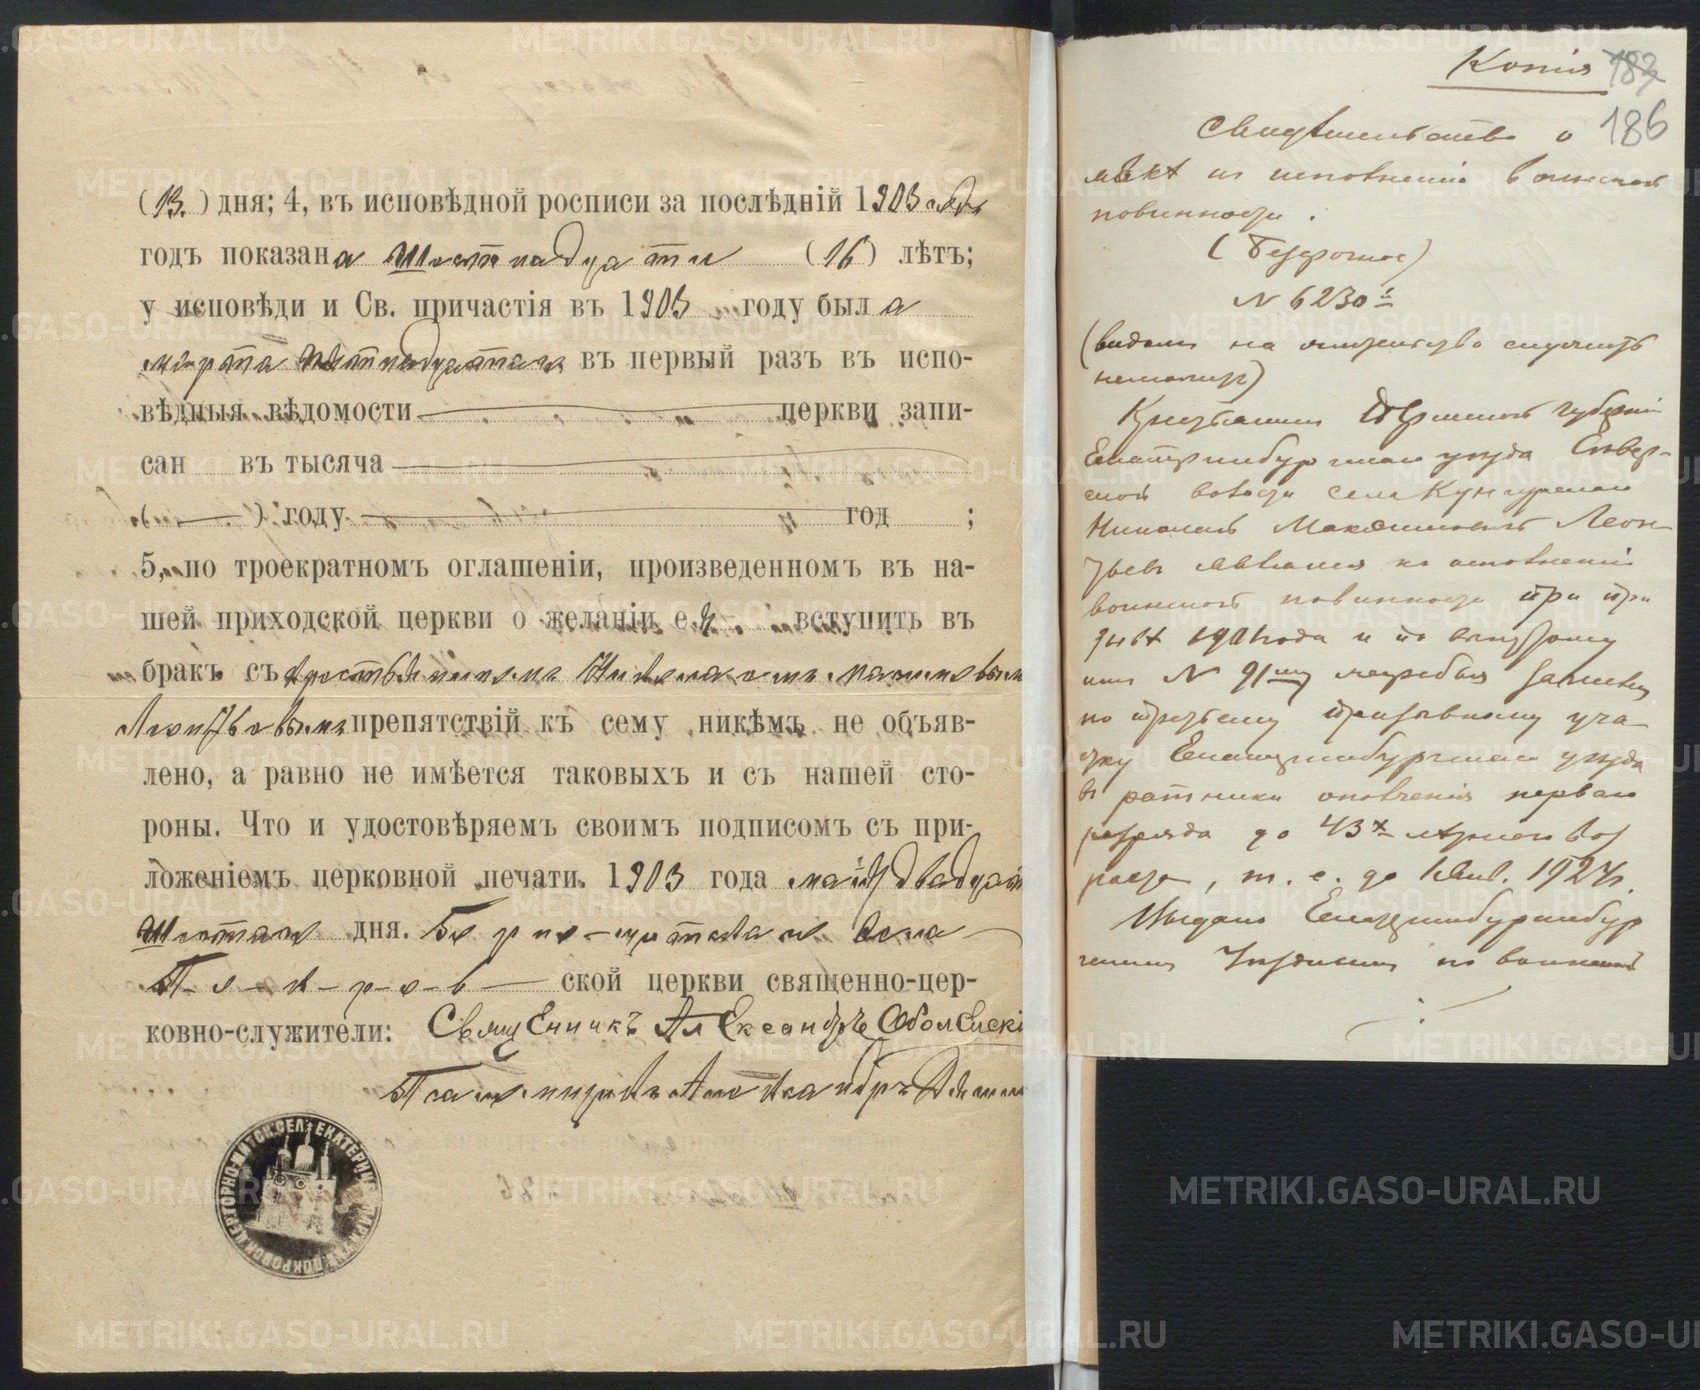 (13.) дня; 4, въ исповѣдной росписи за послѣдній 1903
годъ показана Шестнадцати (16) лѣтъ;
у исповѣди и Св. причастія въ 1903 году была
марта въ первый разъ въ испо-
вѣдныя вѣдомости церкви запи-
сан въ тысяча
( ) году год ;
5, по троекратномъ оглашеніи, произведенномъ въ на-
шей приходской церкви о желаніи ея вступить въ
бракъ съ крестьяниномъ Николаемъ
Леонтьевымъ препятствій къ сему никѣмъ не объяв-
лено, а равно не имѣется таковыхъ и съ нашей сто-
роны. Что и удостовѣряемъ своимъ подписомъ съ при-
ложеніемъ церковной печати. 1903 года мая двадцат
Шестаго дня. села
П-о-к-р-о-в- ской церкви священно-цер-
ковно-служители: Священникъ Александръ Оболенскі
Псаломщикъ Александръ
ЕКАТЕРИНБ.
Копія 183
186
Свидѣтельство о
явкѣ къ исполненію воинской
повинности.
(Безсрочное)
N 6230
(видомъ на жительство служить
не можетъ)
Крестьянинъ Пермской губерніи
Екатеринбургскаго уѣзда Сѣвер-
ской волости села Кунгурскаго
Николай Максимовъ Леон-
тьевъ явился къ исполненію
воинской повинности при при
зывѣ 1901 года и по вынутому
имъ N 91му жеребья зачисленъ
по третьему призывному уча-
стку Екатеринбургскаго уѣзда
въ ратники ополченія перваго
разряда до 43х лѣтняго воз
раста, т. е. до 1 Янв. 1924г.
Выдано Екатеринбуринбур
гскимъ по воинской
METRIKI.GASO-URAL.RU